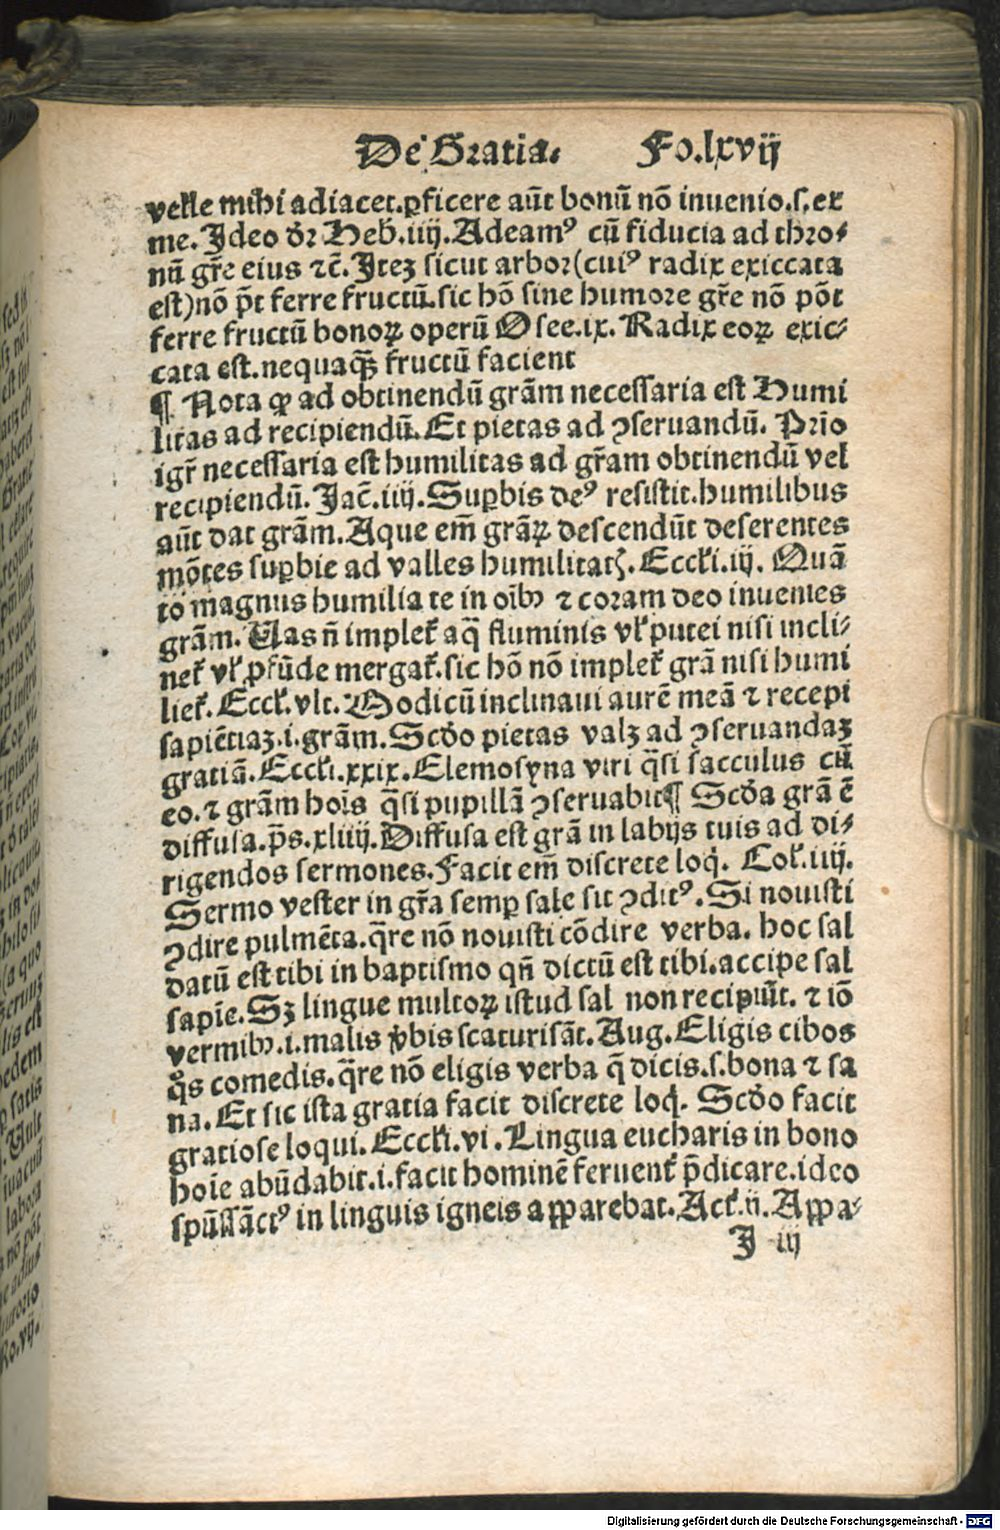 De Gratia. Fo.lxvij
velle mihi adiacet.ꝑficere aūt bonū nō inuenio.s.ex
me. Ideo dr̄ Heb̄.iiij.Adeamꝰ cū fiducia ad thro⸗
nū gr̄e eius ⁊c̄. Itez sicut arbor(cuiꝰ radix exiccata
est)nō p̄t ferre fructū.sic hō sine humore gr̄e nō pōt
ferre fructū bonoꝝ operū Osee.ix. Radix eoꝝ exic⸗
cata est.nequaq̄ꝫ fructū facient
¶ Nota ꝙ ad obtinendū grām necessaria est Humi
litas ad recipiendū. Et pietas ad ꝯseruandū. Prīo
igr̄ necessaria est humilitas ad gr̄am obtinendū vel
recipiendū. Iac̄.iiij.Suꝑbis deꝰ resistit.humilibus
aūt dat grām. Aque em̄ grāꝝ descendūt deserentes
mōtes suꝑbie ad valles humilitatꝭ. Eccłi.iij. Quā
to magnus humilia te in oībꝫ ⁊ coram deo inuenies
grām. Uas n̄ implet̄ aq̄ fluminis vł putei nisi incli⸗
net̄ vł ꝓfūde mergat̄.sic hō nō implet̄ grā nisi humi
liet̄. Eccł.vlt. Modicū inclinaui aurē meā ⁊ recepi
sapiētiaꝫ.i.grām. Scd̄o pietas valꝫ ad ꝯseruandaꝫ
gratiā. Eccłi.xxix. Elemosyna viri q̄si sacculus cū
eo.⁊ grām hoīs q̄si pupillā ꝯseruabit¶ Scd̄a grā ē
diffusa.p̄s.xliiij. Diffusa est grā in labijs tuis ad di⸗
rigendos sermones. Facit em̄ discrete loq̇. Coł.iiij.
Sermo vester in gr̄a semꝑ sale sit ꝯditꝰ. Si nouisti
ꝯdire pulmēta.q̄re nō nouisti cōdire verba. hoc sal
datū est tibi in baptismo qn̄ dictū est tibi.accipe sal
sapīe. Sꝫ lingue multoꝝ istud sal non recipiūt. ⁊ iō
vermibꝫ.i.malis v̄bis scaturisāt. Aug. Eligis cibos
qͦs comedis.q̄re nō eligis verba q̄ dicis.s.bona ⁊ sa
na. Et sic ista gratia facit discrete loq̇. Scd̄o facit
gratiose loqui. Eccłi.vi. Lingua eucharis in bono
hoīe abūdabit.i.facit hominē feruent̄ p̄dicare.ideo
spūssāctꝰ in linguis igneis aꝑꝑarebat. Act̄.ij. Aꝑꝑa⸗
I iij
Digitalisierung gefördert durch die Deutsche Forschungsgemeinschaft - DFG